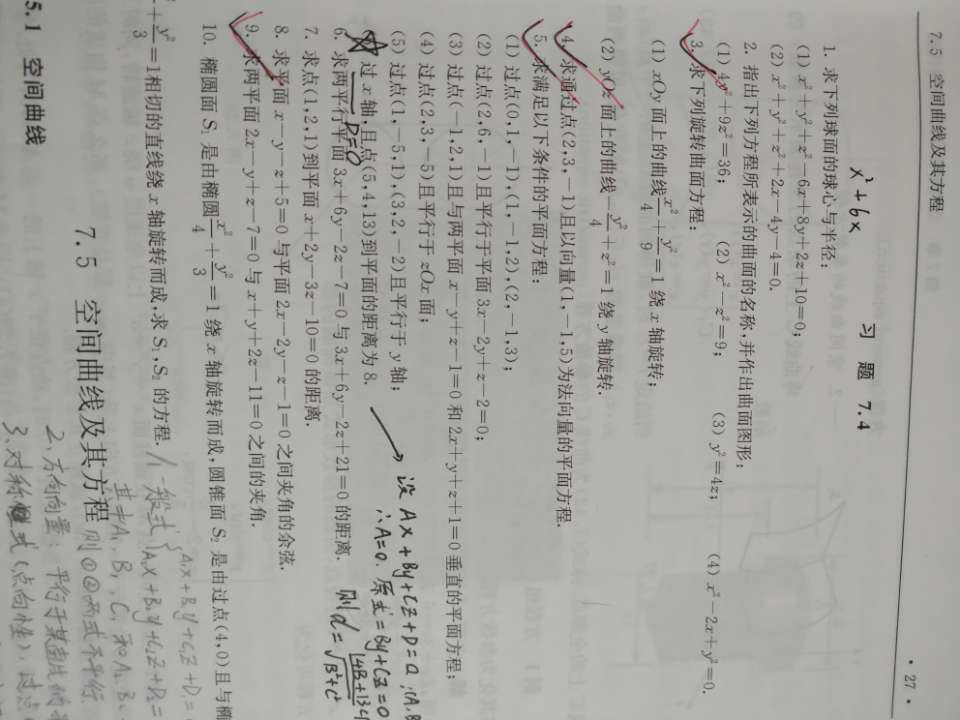 7.5 空间曲线及其方程 · 27 ·
x²+6x
习 题 7.4
1. 求下列球面的球心与半径:
(1) x²+y²+z²-6x+8y+2z+10=0;
(2) x²+y²+z²+2x-4y-4=0.
2. 指出下列方程所表示的曲面的名称,并作出曲面图形:
(1) 4y²+9z²=36; (2) x²-z²=9; (3) y²=4z; (4) x²-2x+y²=0.
3. 求下列旋转曲面方程:
(1) xOy 面上的曲线x²/4+y²/9=1 绕 x 轴旋转;
(2) yOz 面上的曲线-y²/4+z²=1 绕 y 轴旋转.
4. 求通过点(2,3,-1)且以向量(1,-1,5)为法向量的平面方程.
5. 求满足以下条件的平面方程:
(1) 过点(0,1,-1),(1,-1,2),(2,-1,3);
(2) 过点(2,6,-1)且平行于平面 3x-2y+z-2=0;
(3) 过点(-1,2,1)且与两平面 x-y+z-1=0 和 2x+y+z+1=0 垂直的平面方程;
(4) 过点(2,3,-5)且平行于 zOx 面;
(5) 过点(1,-5,1),(3,2,-2)且平行于 y 轴;
过 x 轴,且点(5,4,13)到平面的距离为 8.
设 Ax+By+Cz+D=0
∴A=0. 原式=By+Cz=0
D=0
则d=|4B+13C|/√B²+C²
6. 求两平行平面 3x+6y-2z-7=0 与 3x+6y-2z+21=0 的距离.
7. 求点(1,2,1)到平面 x+2y-3z-10=0 的距离.
8. 求平面 x-y-z+5=0 与平面 2x-2y-z-1=0 之间夹角的余弦.
9. 求两平面 2x-y+z-7=0 与 x+y+2z-11=0 之间的夹角.
10. 椭圆面 S₁ 是由椭圆x²/4+y²/3=1 绕 x 轴旋转而成,圆锥面 S₂ 是由过点(4,0)且与椭
+y²/3=1相切的直线绕 x 轴旋转而成,求 S₁,S₂ 的方程.
7.5 空间曲线及其方程
1、一般式 { A₁x+B₁y+C₁z+D₁=
A₂x+B₂y+C₂z+D₂=
其中A₁、B₁、C₁和A₂、B₂、
则①②两式不平行.
2、方向向量:平行于某直线的
3、对称式(点向性),过点
5.1 空间曲线